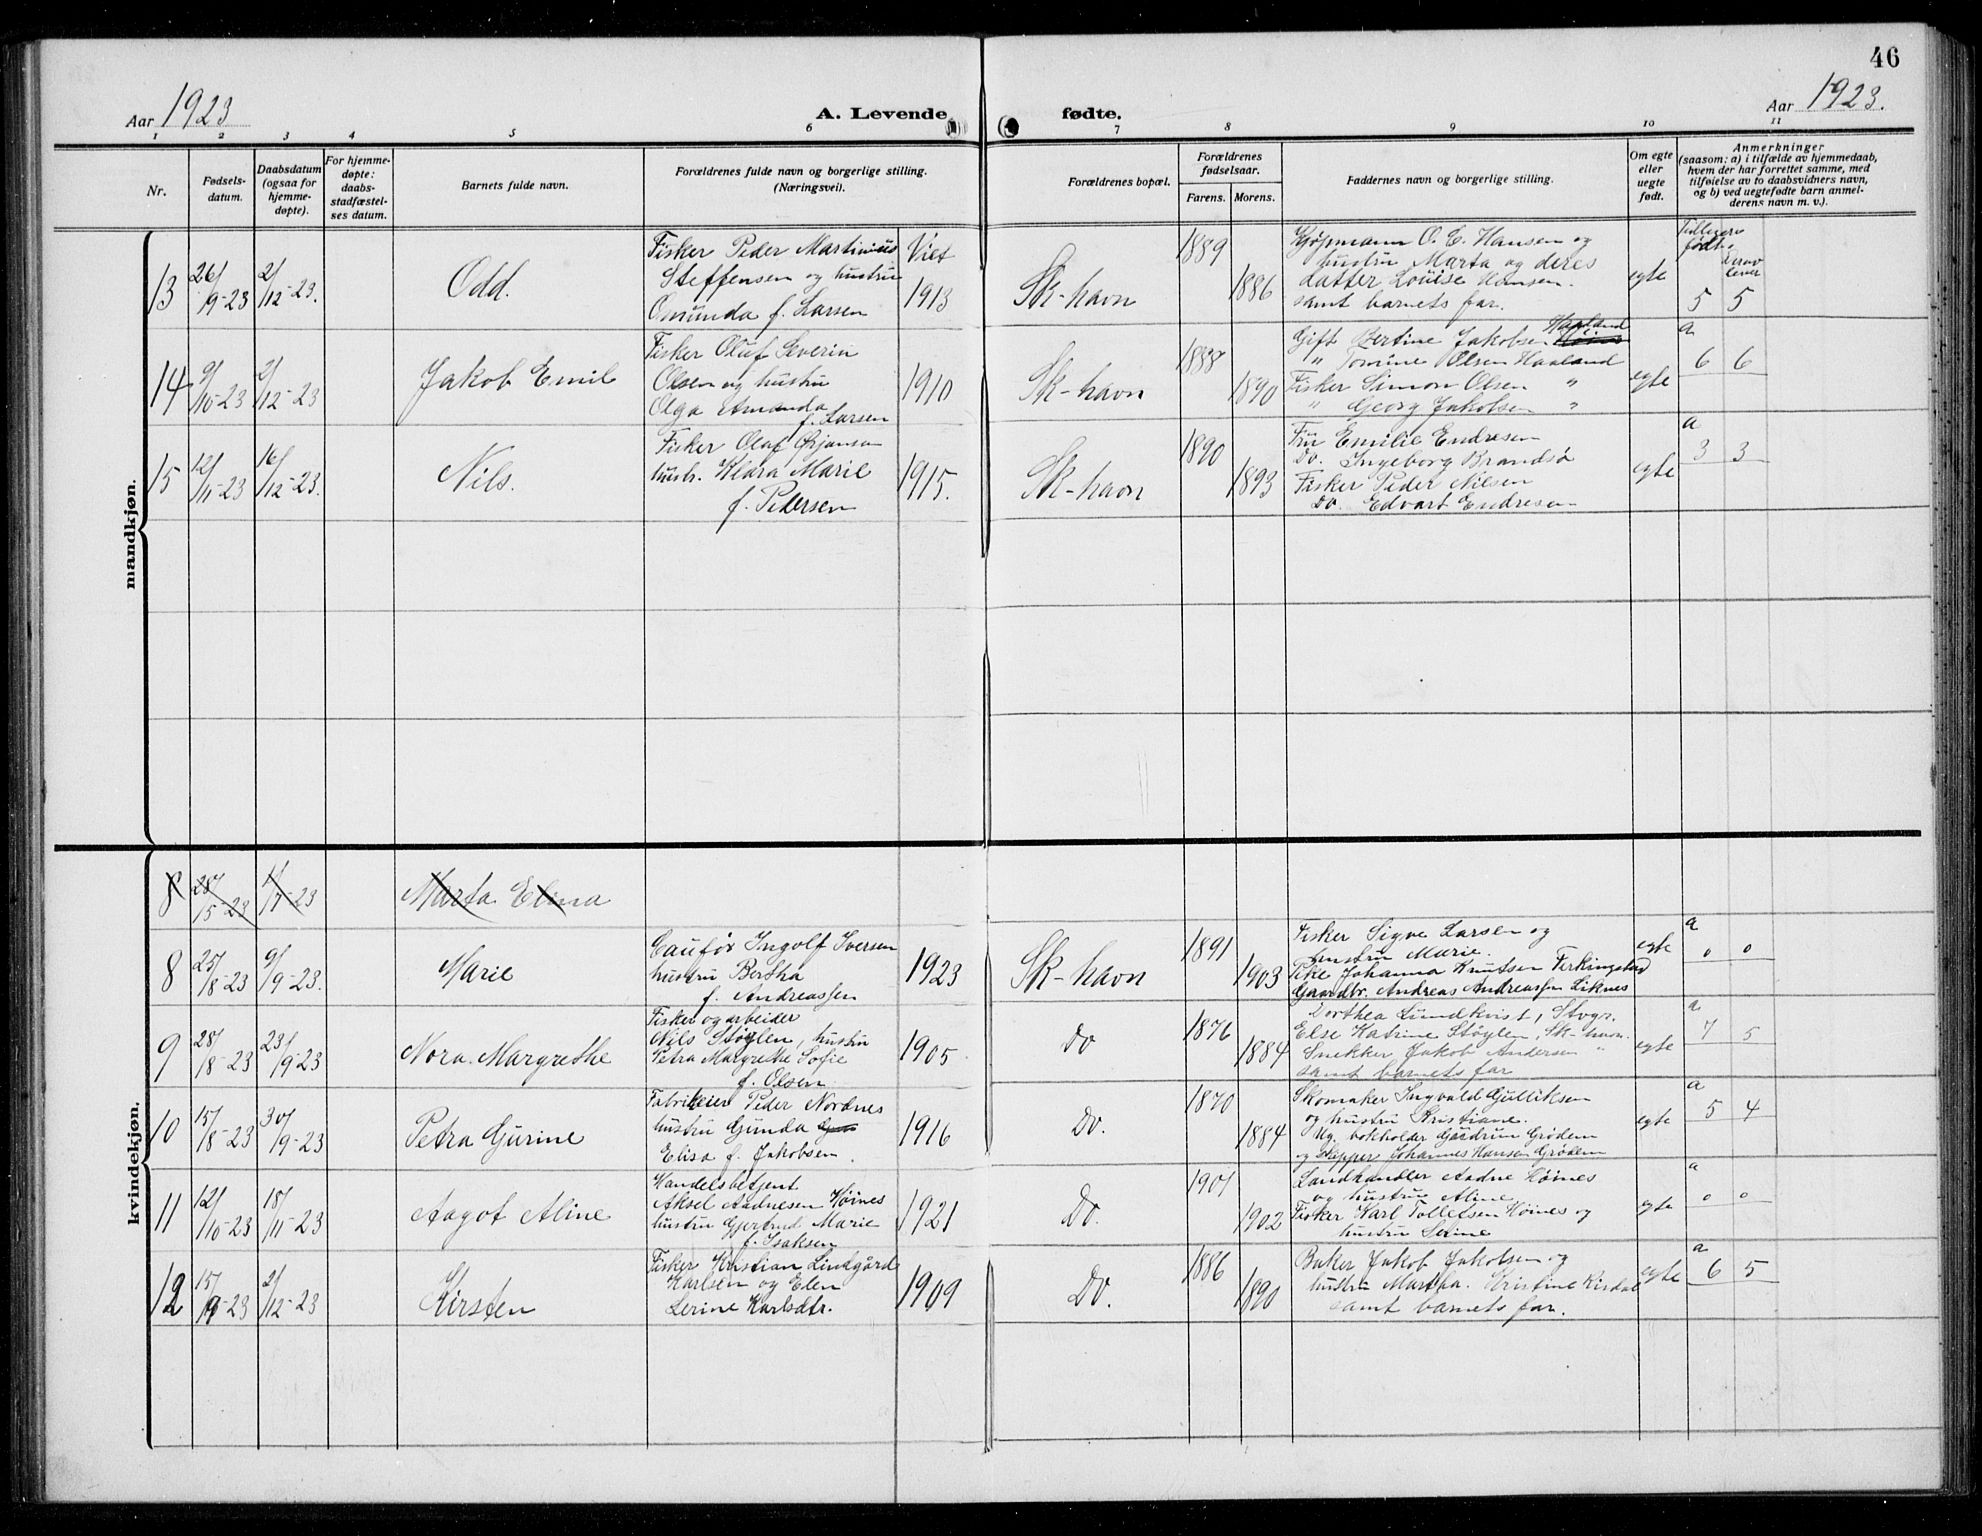 46
Aar 1923
A. Levende fødte.
Aar 1923.
1 2 3 4 5 6 7 8 9 10 11
Nr.
Fødsels-
datum.
Daabsdatum
(ogsaa for
hjemme-
døpte).
For hjemme-
døpte:
daabs-
stadfæstel-
ses datum.
Barnets fulde navn.
Forældrenes fulde navn og borgerlige stilling.
(Næringsvei).
Forældrenes bopæl.
Forældrenes
fødselsaar.
Farens. Morens.
Faddernes navn og borgerlige stilling.
Om egte
eller
uegte
født.
Anmerkninger
(saasom: a) i tilfælde av hjemmedaab,
hvem der har forrettet samme, med
tilføielse av to daabsvidners navn,
og b) ved uegtefødte barn anmel-
derens navn m. v.).
mandkjøn.
13
26/9-23
2/12-23.
Odd.
Fisker Peder Martinius
Steffensen og hustru
Omunda f. Larsen
Viet
1913
Sk-havn
1889
1886
Kjøpmann O. E. Hansen og
hustru Marta og deres
datter Louise Hansen.
samt barnets far.
egte
Tidligere
født
herav
lever
5 5
14
9/10-23
2/12-23
Jakob Emil
Fisker Oluf Severin
Olsen og hustru
Olga Amanda
f. Larsen
1910
Sk-havn
1888
1890
Haaland
Gift Bertine Jakobsen
" Tomine Olsen Haaland
Fisker Simon Olsen "
" Georg Jakobsen "
egte
a
6 6
15
12/11-23
16/12-23.
Nils.
Fisker Olaf Ørjansen
hustr. Klara Marie
f. Pedersen
1915.
Sk-havn
1890
1893
Fru Emilie Endresen
Do. Ingeborg Brandsø
Fisker Peder Nilsen
Do. Edvart Endresen
egte
a
3 3
kvindekjøn.
8
28/5-23
1/7-23
Marta Elina
8
25/8-23
9/9-23.
Marie
Caufør Ingolf Iversen
hustru Bertha
f. Andreassen
1923
Sk-havn
1891
1903
Fisker Sigve Larsen og
hustru Marie.
Pike Johanna Knutsen Ferkingstad
Gaardbr. Andreas Andreassen Liknes
egte
a
0 0
9
28/8-23
23/9-23
Nora Margrethe
Fisker og arbeider
Nils Støylen, hustru
Petra Margrethe Sofie
f. Olsen
1905
Do
1876
1884
Dorthea Lundkvist, Stvgr.
Else Katrine Støylen, Sk-havn.
Snekker Jakob Andersen "
samt barnets far
egte
a
7 5
10
15/8-23
30/9-23
Petra Gurine
Fabrikeier Peder Nordnes
hustru Gunda
Elisa f. Jakobsen.
1916
Do.
1870
1884
Skomaker Ingvald Gulliksen
og hustru Kristiane.
Ug. bokholder Gudrun Grødem
og skipper Johannes Hansen Grødem
egte
a
5 4
11
12/10-23
18/11-23
Aagot Aline
Handelsbetjent
Aksel Aadnesen Høines
hustru Gjertrud Marie
f. Isaksen
1921
Do.
1901
1902
Landhandler Aadne Høines
og hustru Aline
Fisker Karl Tollefsen Høines og
hustru Serine
egte
a
0 0
12
15/9-23
2/12-23
Kirsten
Fisker Kristian Lindgård
Karlsen og Elen
Serine Karlsdtr.
1909
Do.
1886
1890
Baker Jakob Jakobsen og
hustru Martha. Kristine
samt barnets far.
egte
a
6 5